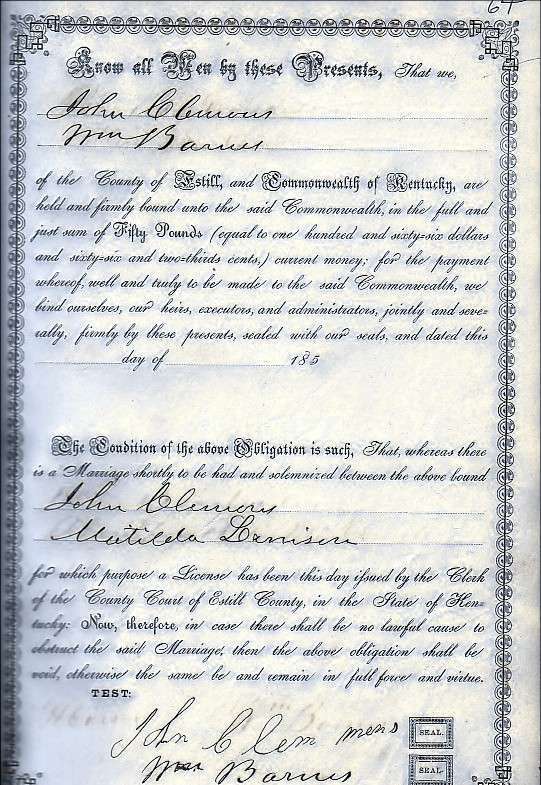 Know all Men by these Presents, That we,
John Clemens
Wm Barnes
of the County of Estill, and Commonwealth of Kentucky, are
held and firmly bound unto the said Commonwealth, in the full and
just sum of Fifty Pounds (equal to one hundred and sixty=six dollars
and sixty=six and two=thirds cents,) current money; for the payment
whereof, well and truly to be made to the said Commonwealth, we
bind ourselves, our heirs, executors, and administrators, jointly and seve=
rally, firmly by these presents, sealed with our seals, and dated this
day of 185
The Condition of the above Obligation is such, That, whereas there
is a Marriage shortly to be had and solemnized between the above bound
John Clemens
Matilda Larrison
for which purpose a License has been this day issued by the Clerk
of the County Court of Estill County, in the State of Ken=
tucky: Now, therefore, in case there shall be no lawful cause to
obstruct the said Marriage, then the above obligation shall be
void, otherwise the same be and remain in full force and virtue.
TEST:
John Clemmens SEAL.
Wm Barnes SEAL.